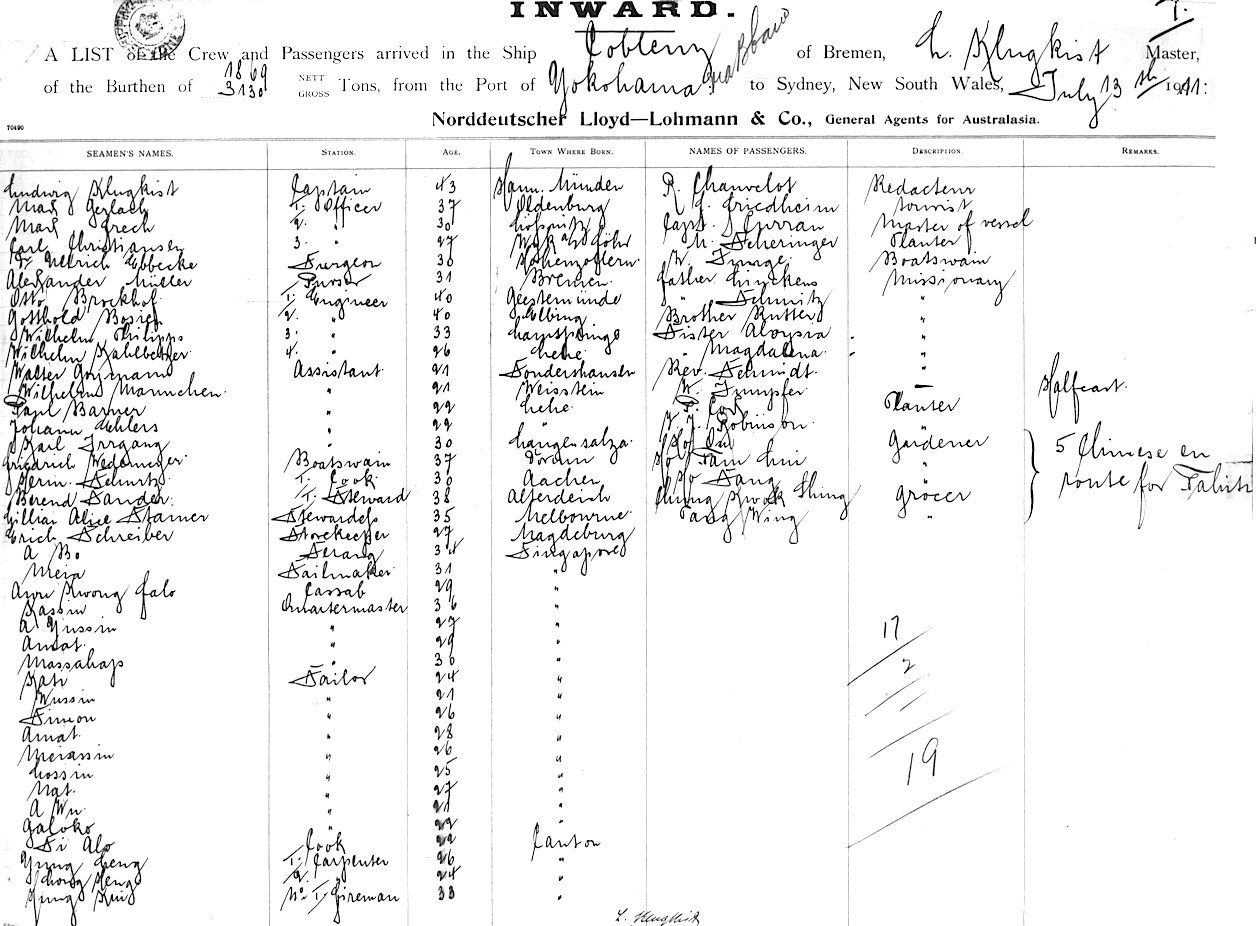 INWARD.
A LIST of the Crew and Passengers arrived in the Ship Coblenz of Bremen, L. Klugkist Master,
of the Burthen of 1869 NETT
3130 GROSS Tons, from the Port of Yokohama to Sydney, New South Wales, July 13th 1911:
70490
Norddeutscher Lloyd—Lohmann & Co., General Agents for Australasia.
SEAMEN'S NAMES. STATION. AGE. TOWN WHERE BORN. NAMES OF PASSENGERS. DESCRIPTION. REMARKS.
Ludwig Klugkist Captain 43 Hann. Münden R. Chauvelot Redacteur
Max Gerlach 1. Officer 37 Oldenburg Friedheim tourist
Max Grech 2. " 30 Capt. J. Curran Master of vessel
Carl Christiansen 3. " 27 Wyk a/ Föhr Scheringer Planter
Dr. Ulrich Ebbecke Surgeon 30 W. Junge Boatswain
Alexander Müller Purser 31 Bremen Father Linckens Missionary
Otto Brockhof 1. Engineer 40 Geestemünde " Schmitz "
Gotthold Bosien 2. " 40 Elbing Brother Rutter "
Wilhelm Philipps 3. " 33 Sister Aloysia "
Wilhelm Kahlbetzer 4. " 26 Lehe " Magdalena "
Walter Assistant 21 Sondershausen Rev. Schmidt. "
Wilhelm Mannchen " 21 Weisstein W. Zumpfer Halfcast.
Paul Barner " 22 Lehe Planter
Johann Ehlers " 22 " Robinson "
Karl Irrgang " 30 Langensalza Gardener 5 Chinese en
Friedrich Wedemeyer Boatswain 37 " route for Tahiti
Schurtz 1. Cook 30 Aachen "
Berend Sander 1. Steward 38 Alterdeich Chung Kwok Ching grocer
Lillian Alice Starner Stewardess 35 Melbourne Tang Wing "
Erich Schreiber Storekeeper 27 Magdeburg
A Bo Serang 34 Singapore
Meia Sailmaker 31 "
Kwong Cassab 29 "
Kassin Quartermaster 36 "
A Yussin " 27 " 17
Amat. " 29 "
Massahap " 30 " 2
Sailor 24 "
Wussin " 21 "
Simon " 26 "
Amat. " 28 "
Meiassin " 26 " 19
Lossin " 25 "
Mat. " 27 "
A Wu " 21 "
Galoko " 22 "
Si Alo Cook 22 Canton
Yung Leng 1. Carpenter 26 "
2. " 24 "
No 1 Fireman 33 "
L. Klugkist